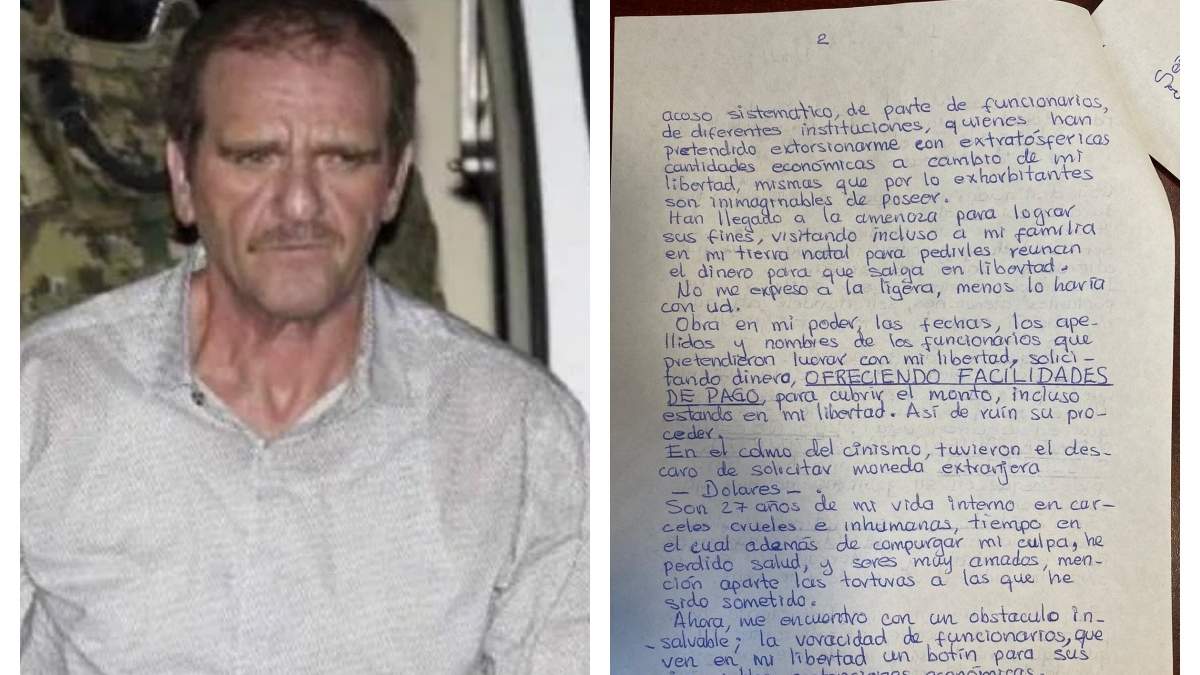 2
acoso sistemático, de parte de funcionarios,
de diferentes instituciones, quienes han
pretendido extorsionarme con extratósfericas
cantidades económicas a cambio de mi
libertad, mismas que por lo exhorbitantes
son inimaginables de poseer.
Han llegado a la amenoza para lograr
sus fines, visitando incluso a mi familia
en mi tierra natal para pedirles reunan
el dinero para que salga en libertad.
No me expreso a la ligera, menos lo haría
con ud.
Obra en mi poder, las fechas, los ape-
llidos y nombres de los funcionarios que
pretendieron lucrar con mi libertad, solici-
tando dinero, OFRECIENDO FACILIDADES
DE PAGO, para cubrir el monto, incluso
estando en mi libertad. Así de ruín su pro-
ceder.
En el colmo del cinismo, tuvieron el des-
caro de solicitar moneda extranjera
- Dolares - .
Son 27 años de mi vida interno en car-
celes crueles e inhumanas, tiempo en
el cual además de compurgar mi culpa, he
perdido salud, y seres muy amados, men-
ción aparte las torturas a las que he
sido sometido.
Ahora, me encuentro con un obstaculo in-
salvable; la voracidad de funcionarios, que
ven en mi libertad un botín para sus
económicas.